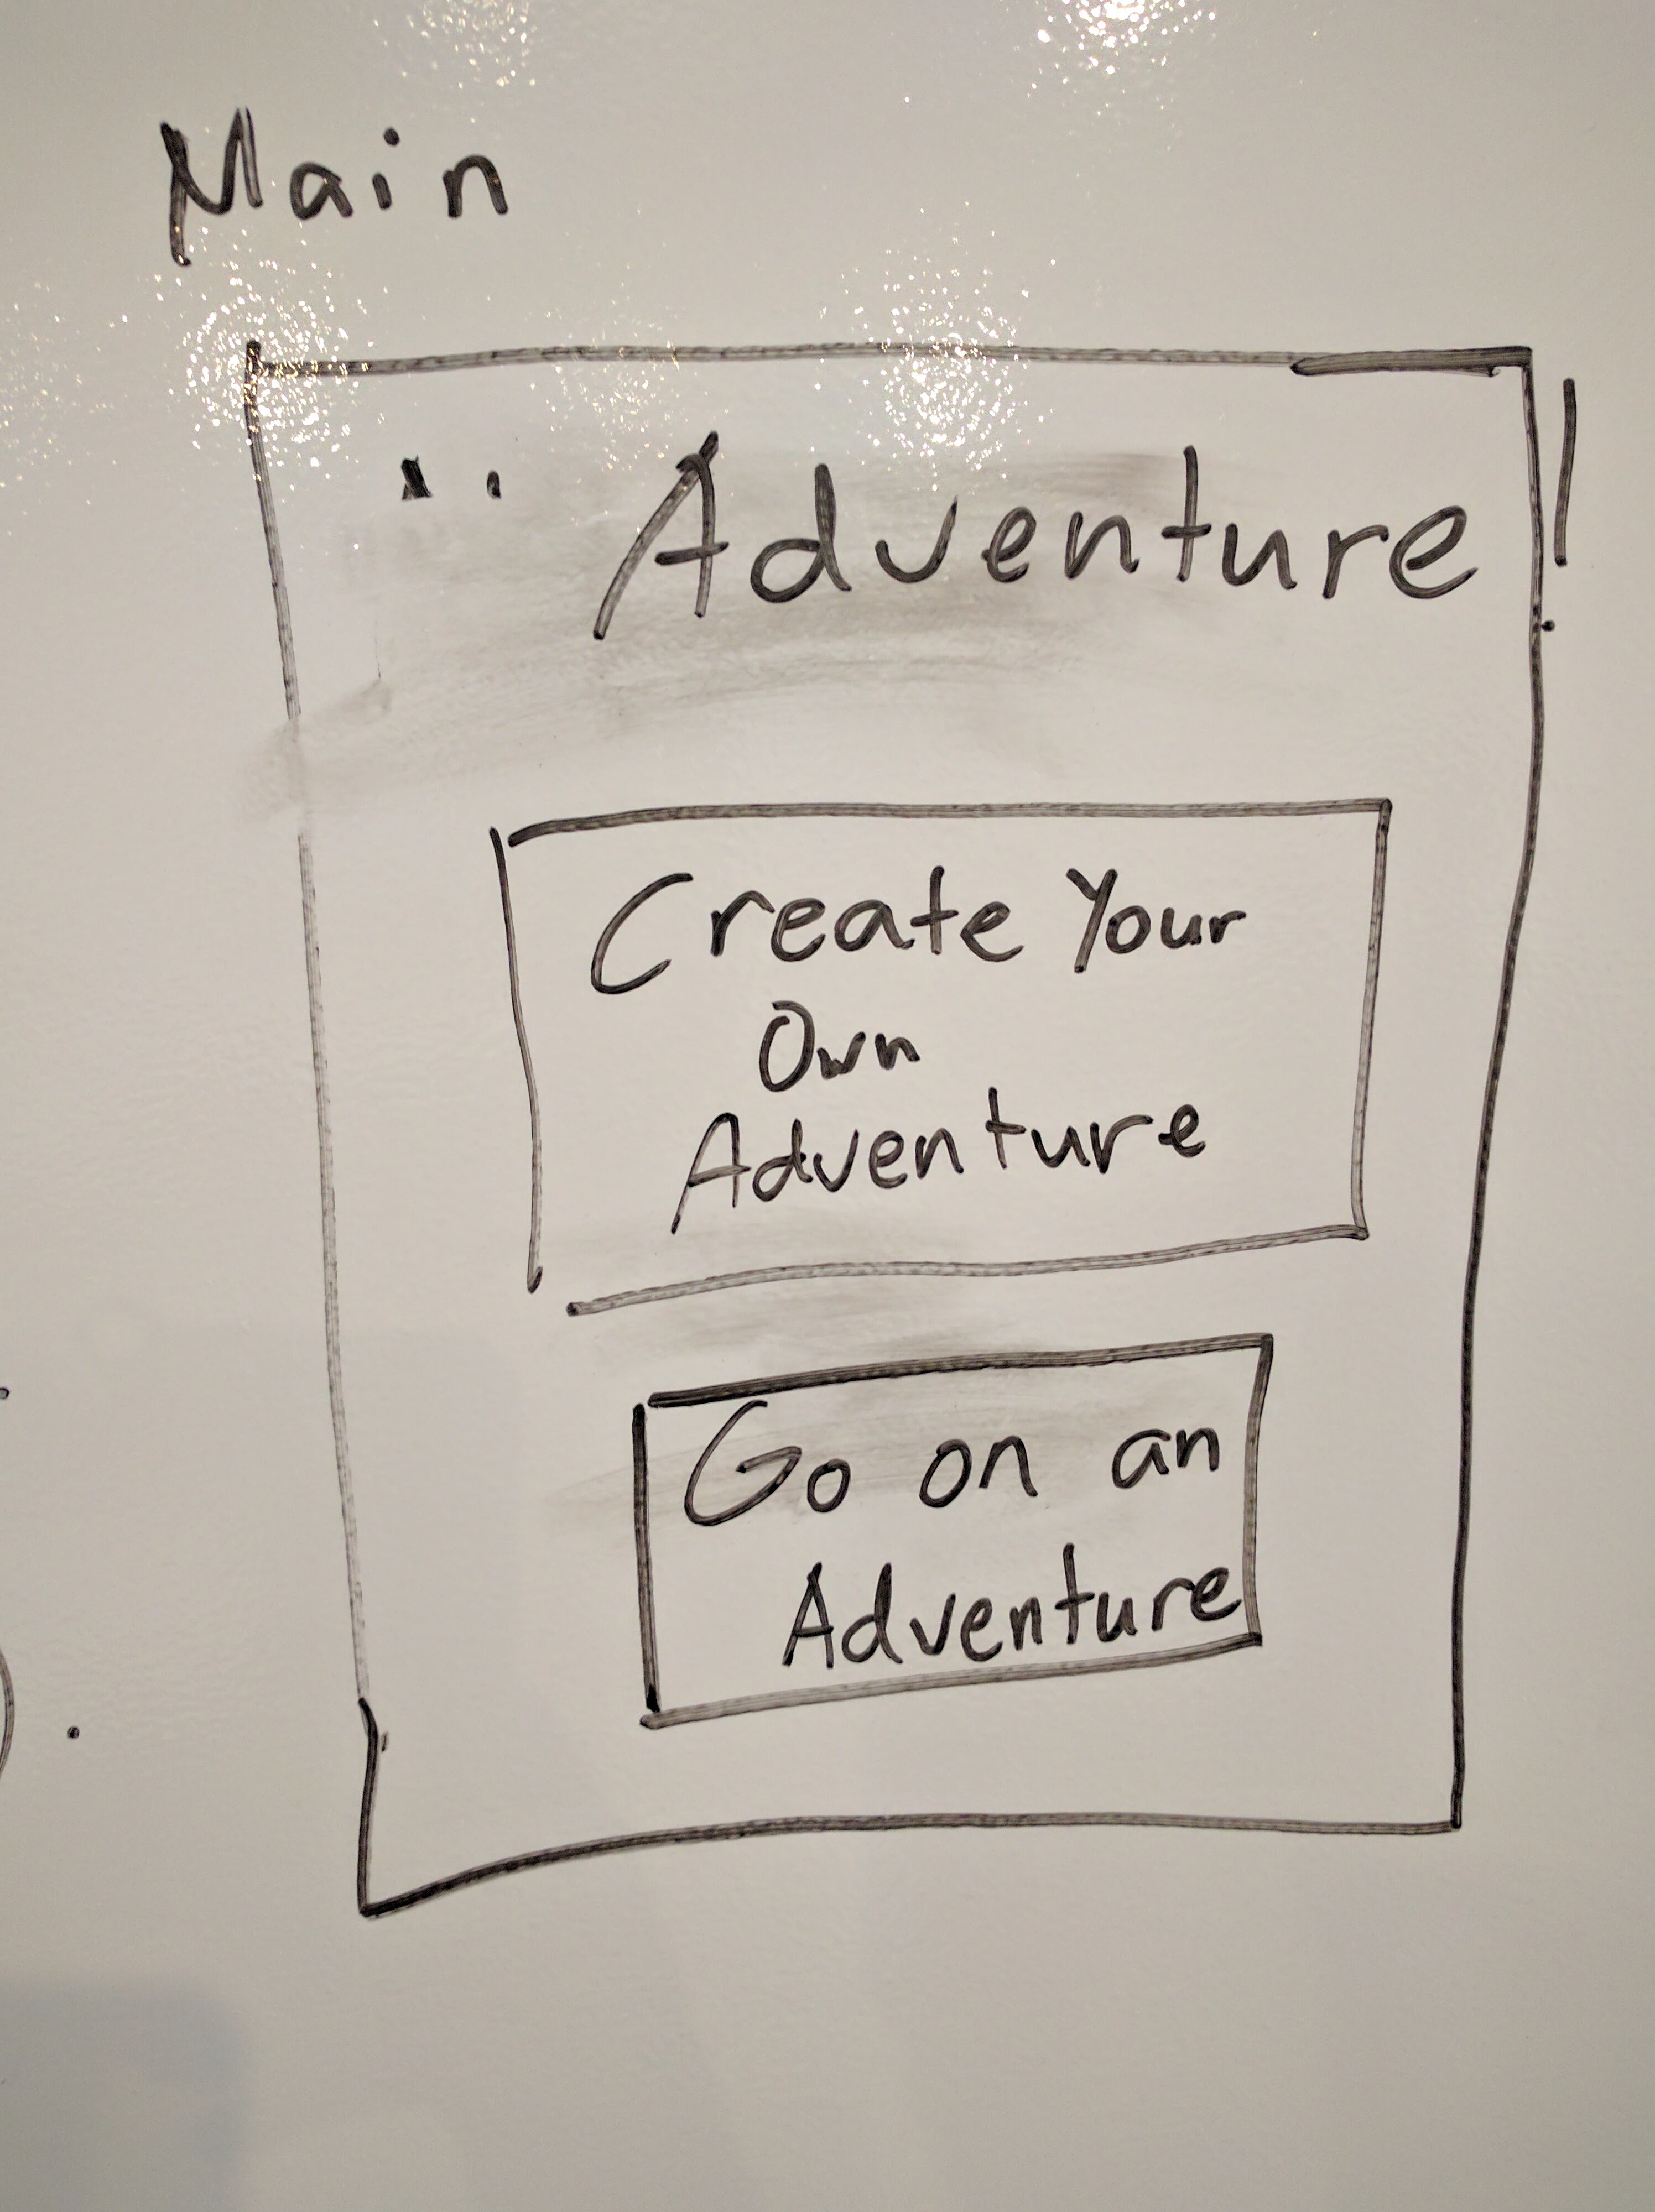 Main
Adventure!
Create Your
Own
Adventure
Go on an
Adventure